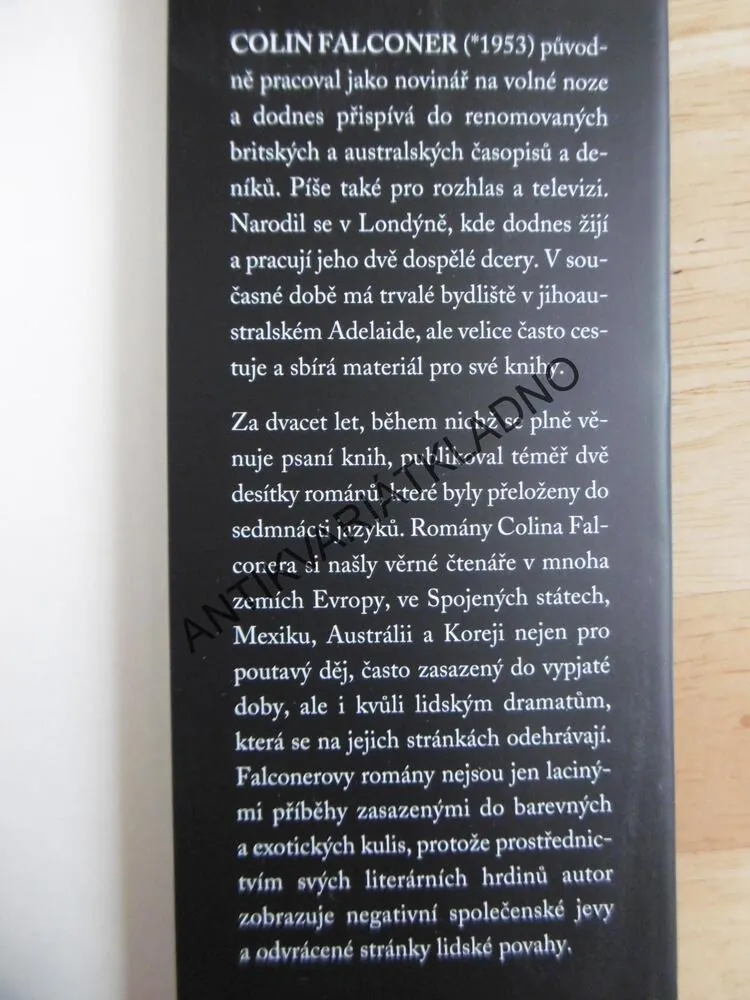 COLIN FALCONER (*1953) původ-
ně pracoval jako novinář na volné noze
a dodnes přispívá do renomovaných
britských a australských časopisů a de-
níků. Píše také pro rozhlas a televizi.
Narodil se v Londýně, kde dodnes žijí
a pracují jeho dvě dospělé dcery. V sou-
časné době má trvalé bydliště v jihoau-
stralském Adelaide, ale velice často ces-
tuje a sbírá materiál pro své knihy.
Za dvacet let, během nichž se plně vě-
nuje psaní knih, publikoval téměř dvě
desítky románů, které byly přeloženy do
sedmnácti jazyků. Romány Colina Fal-
conera si našly věrné čtenáře v mnoha
zemích Evropy, ve Spojených státech,
Mexiku, Austrálii a Koreji nejen pro
poutavý děj, často zasazený do vypjaté
doby, ale i kvůli lidským dramatům,
která se na jejich stránkách odehrávají.
Falconerovy romány nejsou jen laciný-
mi příběhy zasazenými do barevných
a exotických kulis, protože prostřednic-
tvím svých literárních hrdinů autor
zobrazuje negativní společenské jevy
a odvrácené stránky lidské povahy.
ANTIKVARIÁTKLADNO